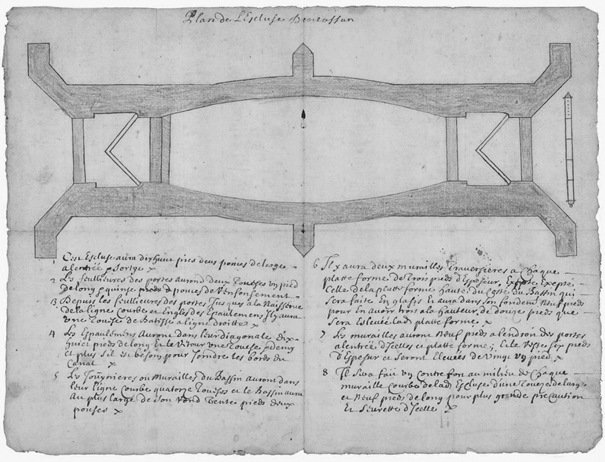 Plan de L'Escluse
1 C'est Escluse aura dix huict pieds deux pouces de large
a lentrée & sortye
2 Les feuilleures des portes auront deux Toises un pied
de long & quinze pieds de venfonsement
3 Depuis les feuilleures des portes Jusques a la Naissance
de la ligne Courbe et Engles des Epaulemens Il y aura
vne Toise de Batisse a ligne droitte
4 Les Epaulemens Auront dans Leur diagonale Dix
pieds de long Et le Retour vne Toise & demy
et plus s'il Est besoing pour Joindre les bords du
Canal
5 Les Tournieres ou Murailles du Bassin auront dans
leur ligne Courbe quatorze Toises et le Bassin aura
Au plus large de son Rond Trente pieds deux
pouces
6 Il y aura deux murailles Traversieres a Chaque
platte forme de Trois pieds d'Espesseur, Excepté
Celle de la platte forme haute du Costé du Bassin qui
Sera faite En glasis Et aura dans son fondement Neuf pieds
pour En avoir trois a la hauteur de douze pieds que
Sera Eslevée lad. platte forme
7 Les murailles auront Neuf pieds a lendroit des portes
a lentrée d'Icelles et platte forme; Cette Six pieds
d'Espesseur et Seront Elevées de Vingt un pied
8 Il Sera fait un Contrefort au milieu de Chaque
muraille Courbe de lad. Escluse d'une Toise de large
et Neuf pieds de long pour plus grande precaution
Et Seureté d'Icelle